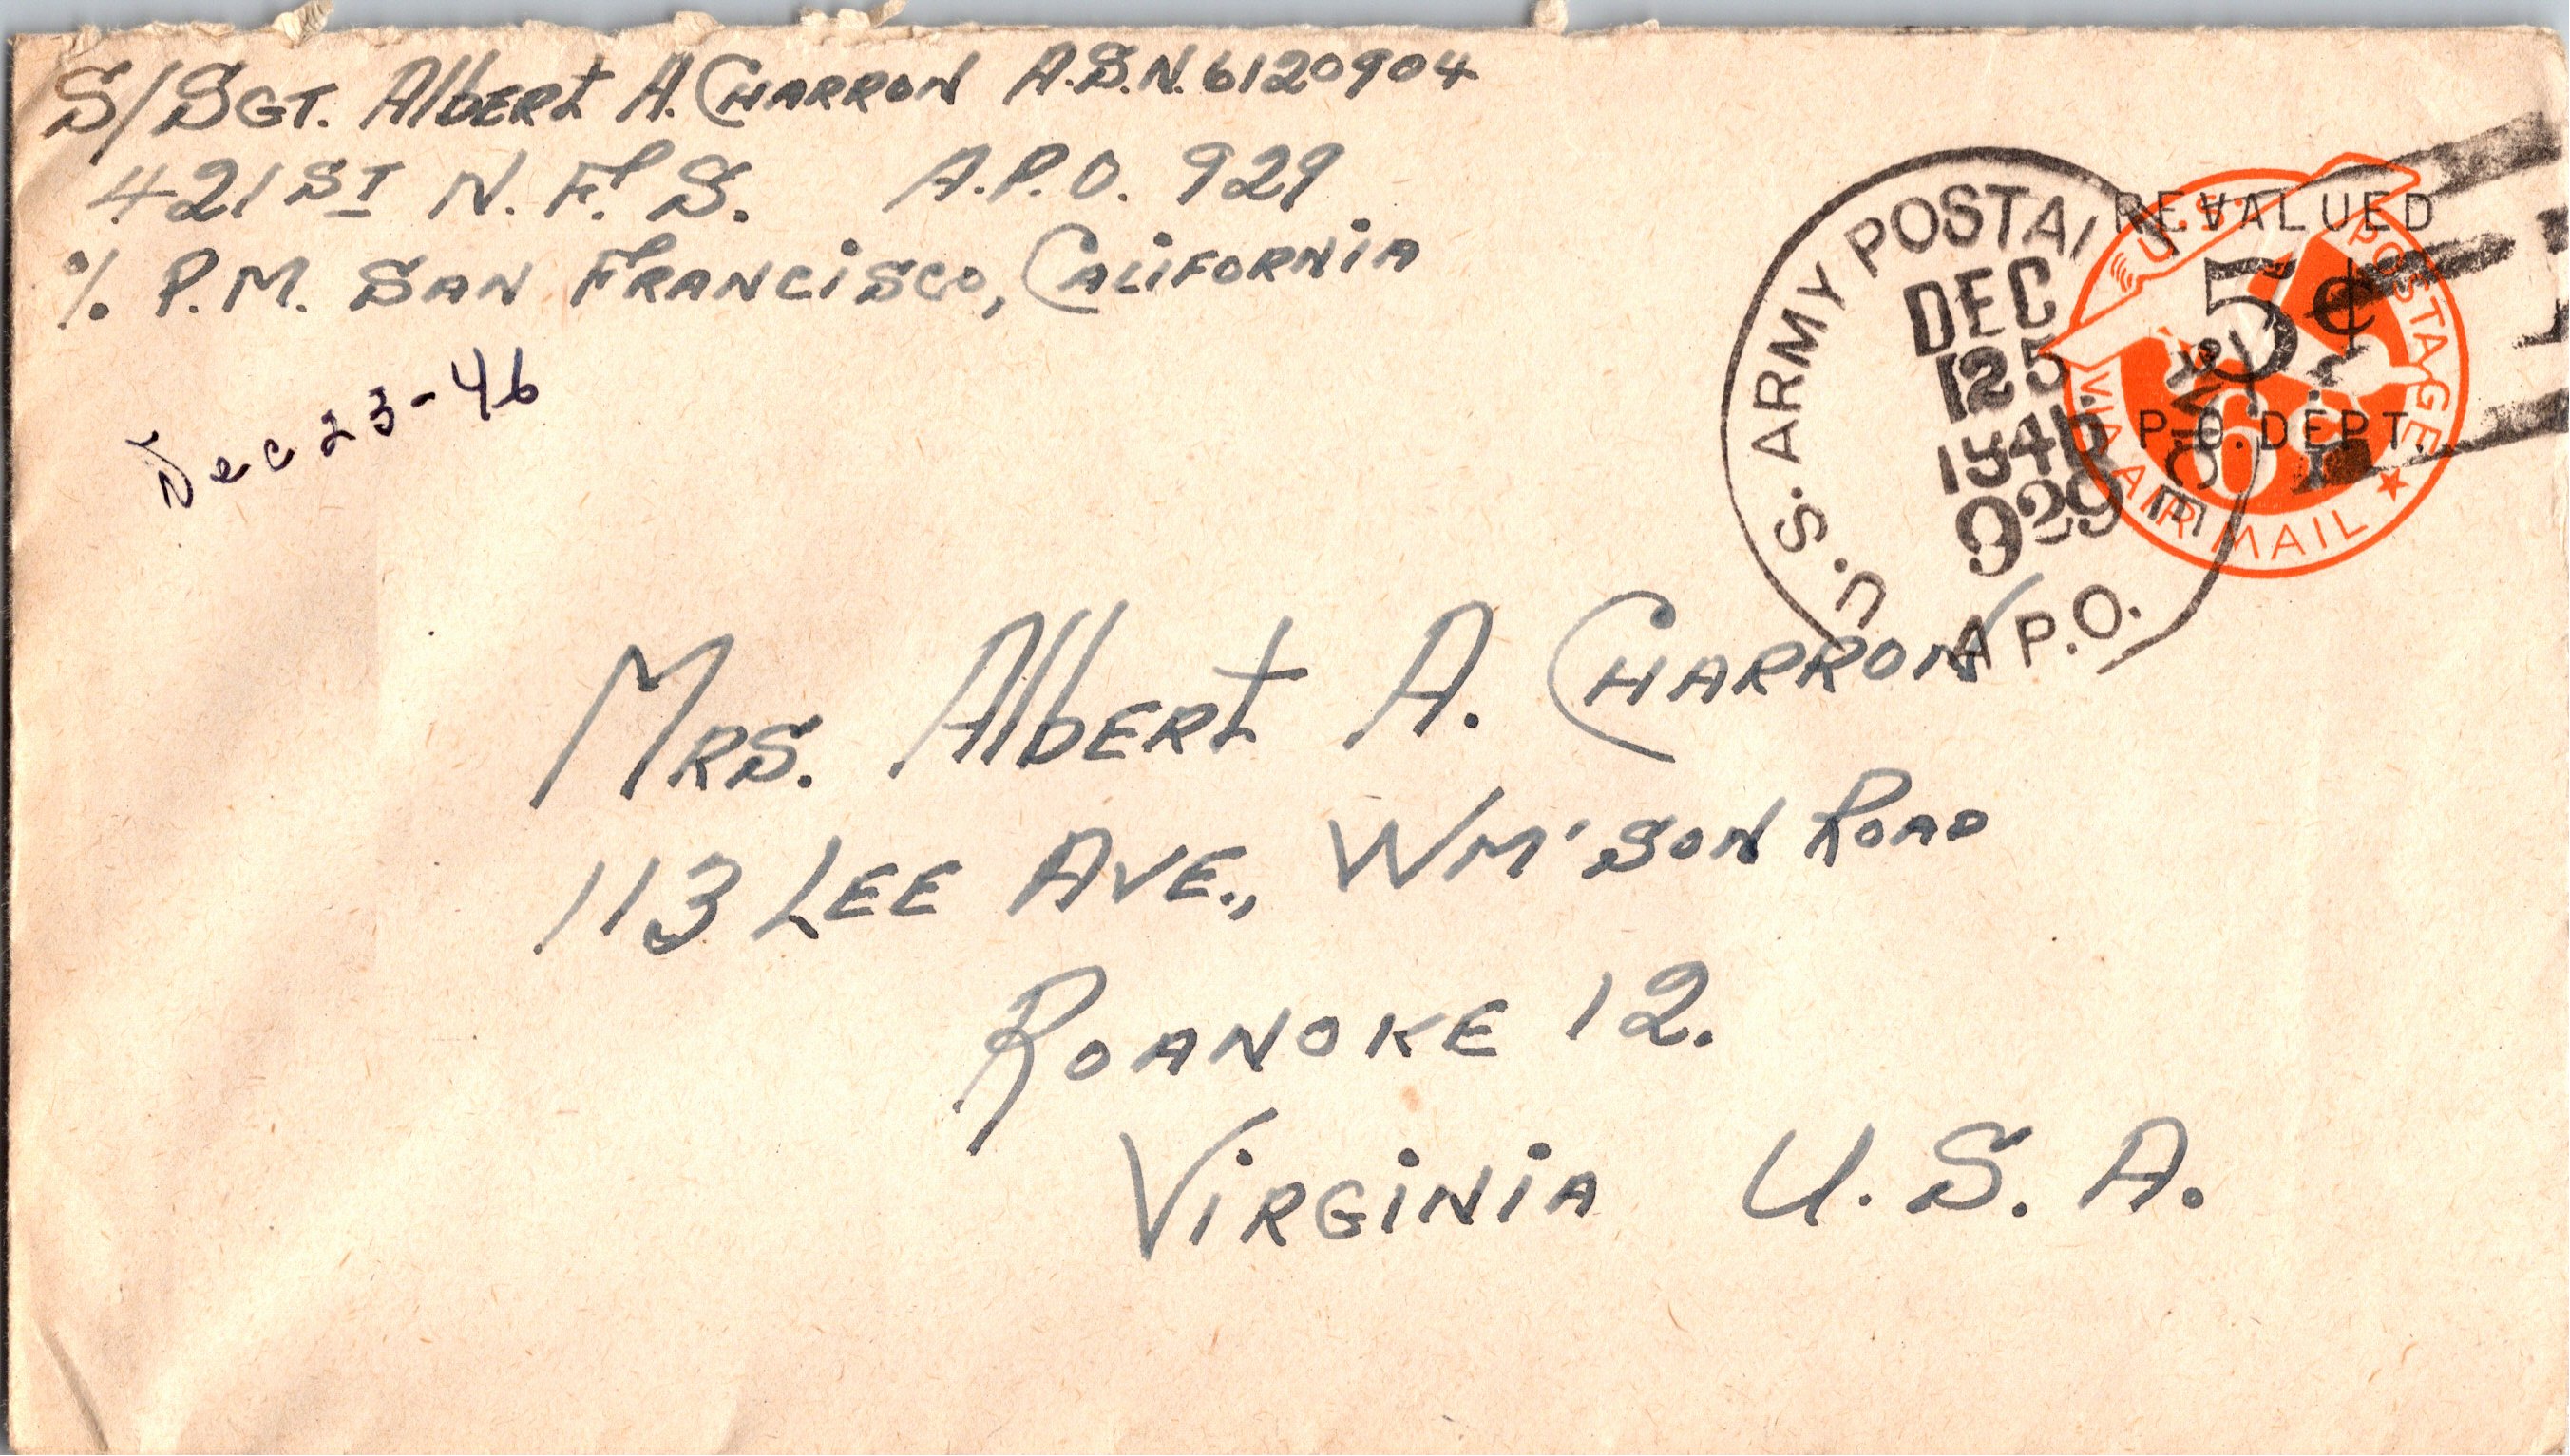 S/SGT. Albert A. CHARRON A.S.N. 6120904
421ST N. F. S. A.P.O. 929
% P.M. SAN FRANCISCO, CALIFORNIA
Dec 23-46
U.S. ARMY POSTAL
DEC
1946
929
A.P.O.
REVALUED
5¢
P.O. DEPT.
U.S. POSTAGE
6
VIA AIR MAIL
MRS. Albert A. CHARRON
113 LEE AVE., WM'SON ROAD
ROANOKE 12.
VIRGINIA U. S. A.